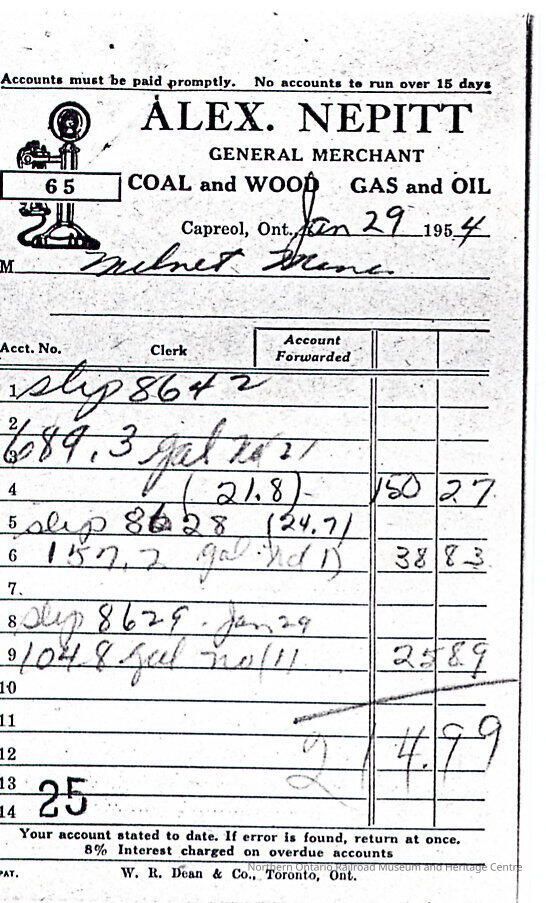 Accounts must be paid promptly. No accounts to run over 15 days
ALEX. NEPITT
GENERAL MERCHANT
65
COAL and WOOD GAS and OIL
Capreol, Ont. Jan 29 1954
M Milnet Mines
Acct. No. Clerk Account Forwarded
1 slip 8642
2
3 689.3 gal no 2
4 (21.8) 150 27
5 slip 8628 (24.7)
6 157.2 gal no 1 38 83
7
8 slip 8629 - Jan 29
9 104 8 gal no 1 25 89
10
11
12 214.99
13
14 25
Your account stated to date. If error is found, return at once.
8% Interest charged on overdue accounts
PAT. W. R. Dean & Co., Toronto, Ont.
Northern Ontario Railroad Museum and Heritage Centre